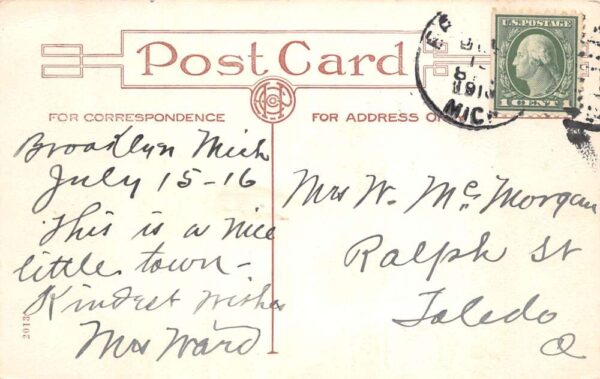 Post Card
FOR CORRESPONDENCE
FOR ADDRESS
U.S. POSTAGE
1 CENT 1
MICH
Brooklyn Mich
July 15-16
This is a nice
little town-
Kindest wishes
Mrs Ward
Mrs W. Mc Morgan
Ralph St
Toledo
O
2013